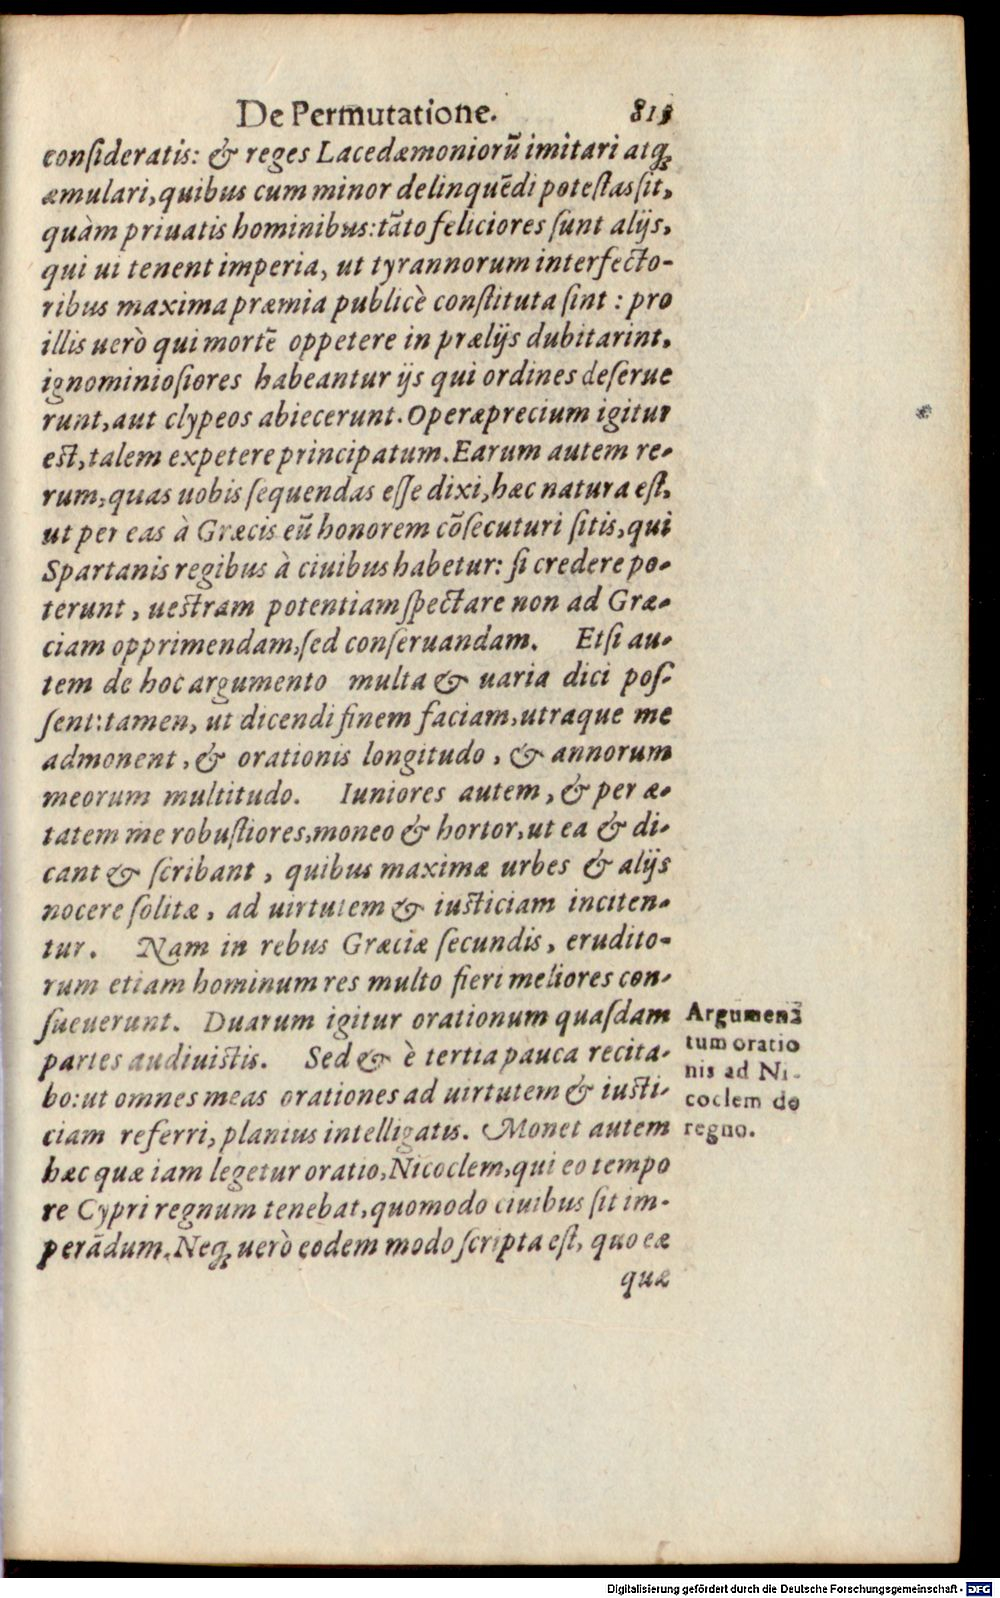 De Permutatione. 813
conſideratis: & reges Lacedæmoniorũ imitari atq́;
æmulari, quibus cum minor delinquẽdi poteſtas ſit,
quàm priuatis hominibus: tãto feliciores ſunt alijs,
qui ui tenent imperia, ut tyrannorum interfecto-
ribus maxima præmia publicè conſtituta ſint : pro
illis uerò qui mortẽ oppetere in prælijs dubitarint,
ignominioſiores habeantur ijs qui ordines deſerue
runt, aut clypeos abiecerunt. Operæprecium igitur
est, talem expetere principatum. Earum autem re-
rum, quas uobis ſequendas eſſe dixi, hæc natura eſt,
ut per eas à Græcis eũ honorem cõſecuturi ſitis, qui
Spartanis regibus à ciuibus habetur: ſi credere po-
terunt, uestram potentiam ſpectare non ad Græ-
ciam opprimendam, ſed conſeruandam. Etſi au-
tem de hoc argumento multa & uaria dici poſ-
ſent: tamen, ut dicendi finem faciam, utraque me
admonent, & orationis longitudo, & annorum
meorum multitudo. Iuniores autem, & per æ-
tatem me robuſtiores, moneo & hortor, ut ea & di-
cant & ſcribant, quibus maximæ urbes & alijs
nocere ſolitæ, ad uirtutem & iusticiam inciten-
tur. Nam in rebus Græciæ ſecundis, erudito-
rum etiam hominum res multo fieri meliores con-
ſueuerunt. Duarum igitur orationum quaſdam
partes audiuistis. Sed & è tertia pauca recita-
bo: ut omnes meas orationes ad uirtutem & iusti-
ciam referri, planius intelligatis. Monet autem
hæc quæ iam legetur oratio, Nicoclem, qui eo tempo
re Cypri regnum tenebat, quomodo ciuibus ſit im-
perãdum. Neq; uerò eodem modo ſcripta eſt, quo eæ
quæ
Argumen
tum oratio
nis ad Ni-
coclem de
regno.
Digitalisierung gefördert durch die Deutsche Forschungsgemeinschaft - DFG